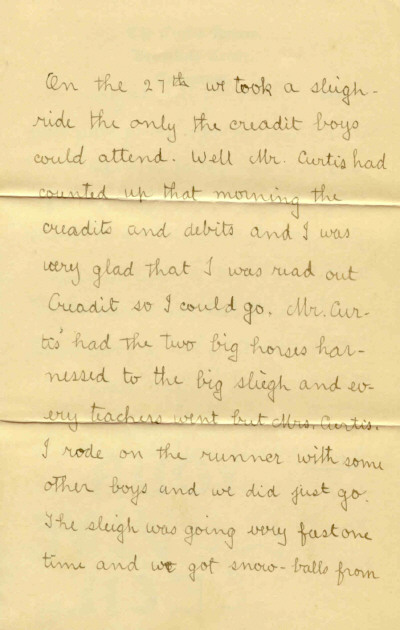 On the 27th we took a sleigh-
ride the only the creadit boys
could attend. Well Mr. Curtis had
counted up that morning the
creadits and debits and I was
very glad that I was read out
Creadit so I could go. Mr. Cur-
tis' had the two big horses har-
nessed to the big sliegh and ev-
ery teachers went but Mrs. Curtis.
I rode on the runner with some
other boys and we did just go.
The sleigh was going very fast one
time and we got snow-balls from